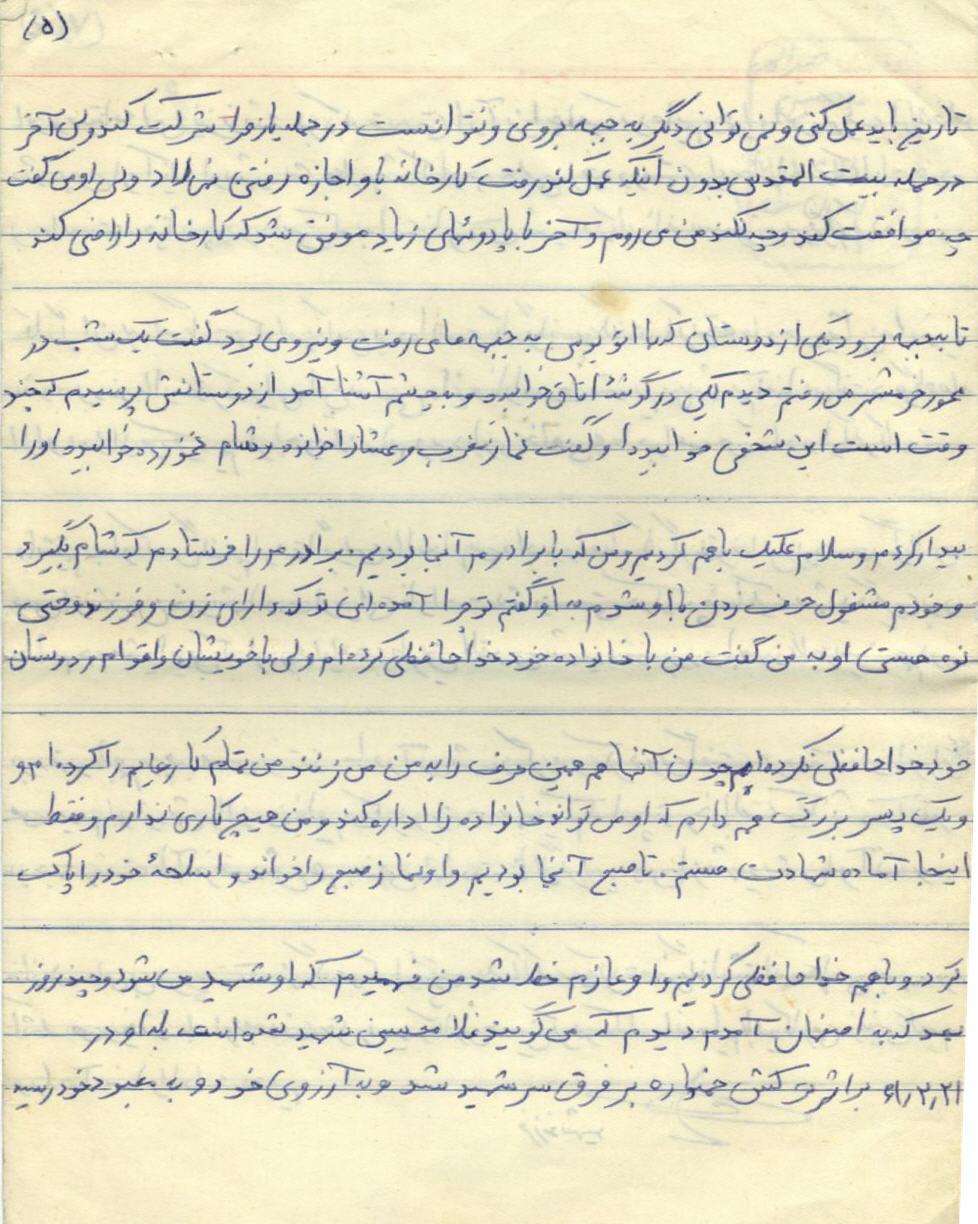 (۵)
تاریخ باید عمل کنی و نمی توانی دیگر به جبهه بروی و نتوانست در حمله یا زهرا شرکت کند ولی آخر
در حمله بیت المقدس بدون آنکه عمل کند رفت کارخانه باو اجازه رفتن نمی داد ولی او می گفت
چه موافقت کند و چه نکند من می روم و آخر با پا دوئیهای زیاد موفق شد که کارخانه را راضی کند
تا بجبهه برود یکی از دوستان که با اتو بوس به جبهه ها می رفت و نیرو می برد گفت یک شب در
محور خرمشهر می رفتم دیدم یکی در گوشهٔ اتاق خوابیده و به چشم آشنا آمد از دوستانش پرسیدم که چند
وقت است این شخص خوابیده او گفت نماز مغرب و عشا را خوانده و شام نخورده خوابیده او را
بیدار کردم و سلام علیک باهم کردیم و من که با برادرم آنجا بودیم. برادرم را فرستادم که شام بگیرد
و خودم مشغول حرف زدن با او شدم به او گفتم تو چرا آمده ای تو که دارای زن و فرزند و حتی
نوه هستی او به من گفت من با خانواده خود خدا حافظی کرده ام ولی با خویشان و اقوام و دوستان
خود خدا حافظی نکرده ام چون آنها هم همین حرف را به من می زنند من تمام کارهایم را کرده ام و
و یک پسر بزرگ هم دارم که او می تواند خانواده را اداره کند و من هیچ کاری ندارم و فقط
اینجا آماده شهادت هستم. تا صبح آنجا بودیم و او نماز صبح را خواند و اسلحهٔ خود را پاک
کرد و باهم خدا حافظی کردیم و او عازم خط شد من فهمیدم که او شهید می شود و چند روز
بعد که به اصفهان آمدم دیدم که می گویند غلامحسین شهید شده است بله او در
۶۱٫۲٫۲۱ بر اثر ترکش خمپاره بر فرق سر شهید شد و به آرزوی خود و به معبود خود رسید